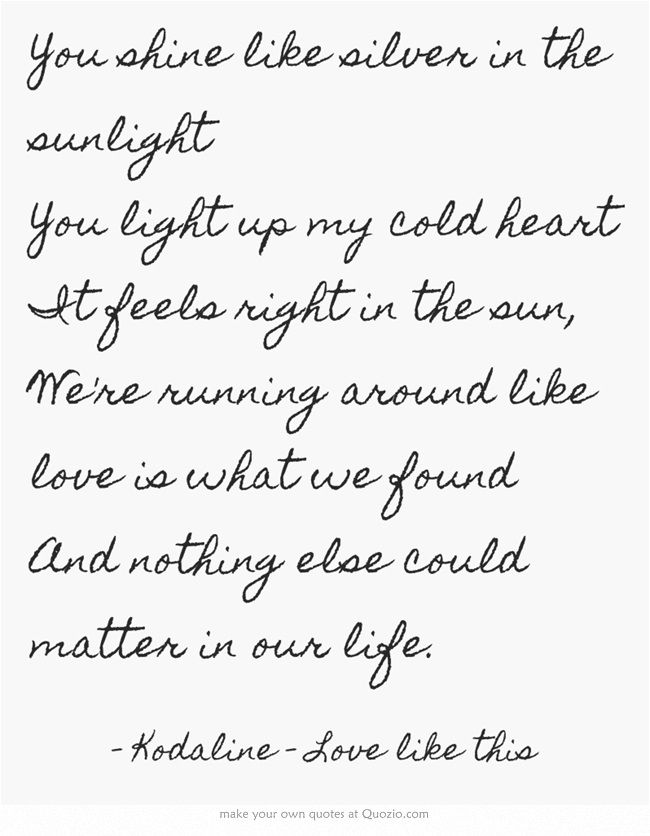 You shine like silver in the
sunlight
You light up my cold heart
It feels right in the sun,
We're running around like
love is what we found
And nothing else could
matter in our life.
- Kodaline - Love like this
make your own quotes at Quozio.com